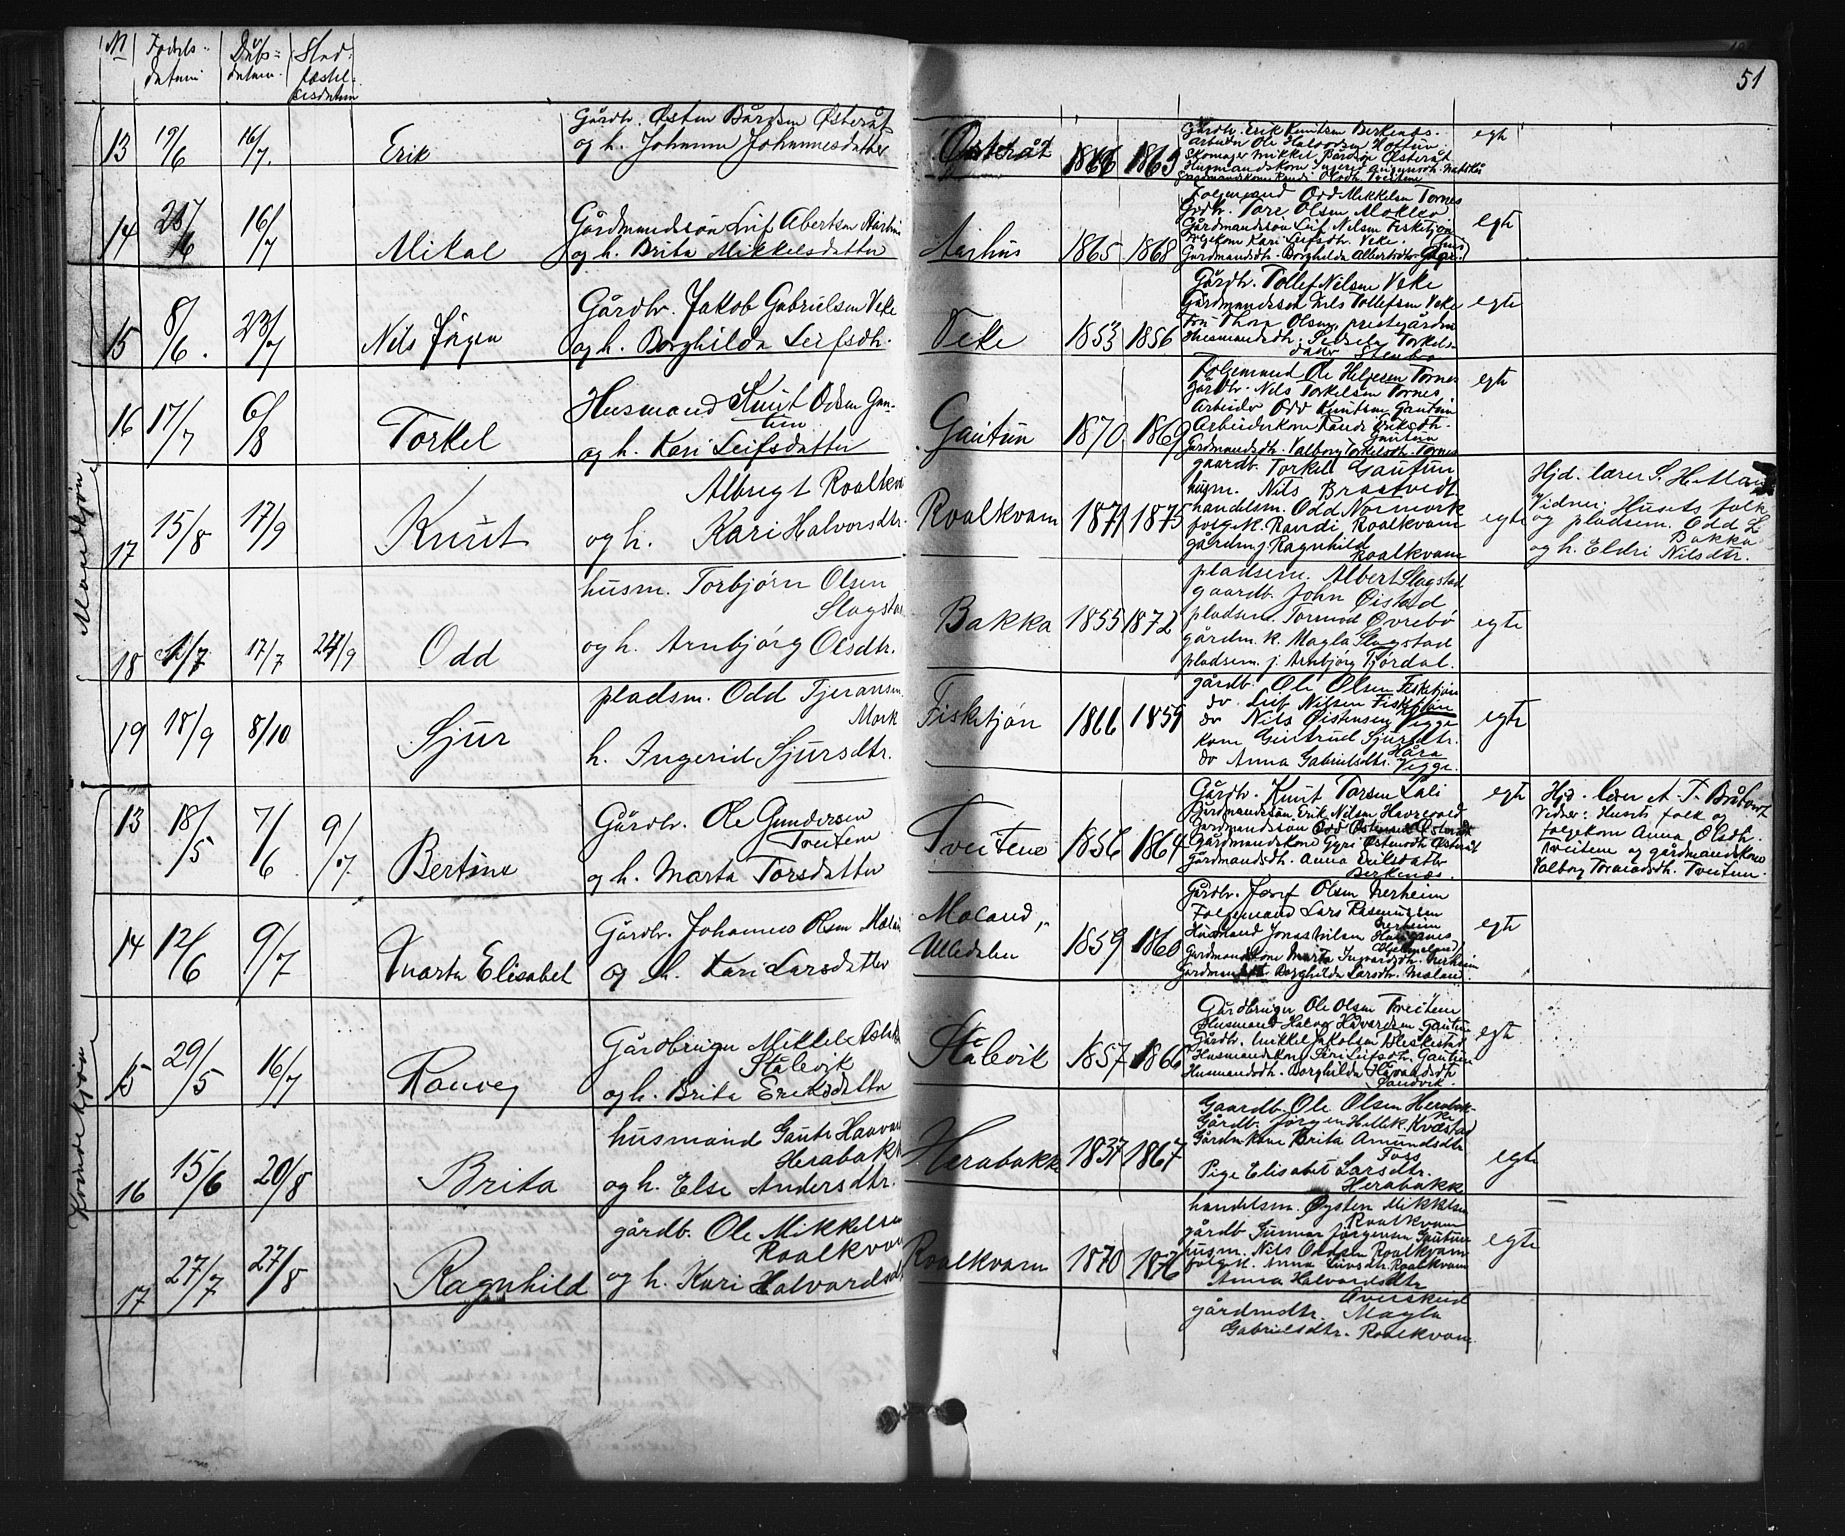 N Fødels- datum Dåbs- datum. Stad- fæstel- sesdatum
51
13 19/6 16/7. Erik
Gårdbr. Østen Bårdsen Østeråt
og h. Johanna Johannesdatter
Østeråt 1866 1863
Gårdbr. Erik Knutsen Berkenæs.
Arbeider Ole Halvorsen
Skomager Mikkel Bårdsen Østeråt
egte
14 16/7 Mikal
Gårdmandssøn Leif Albertsen Aarhus
og h. Brita Mikkelsdatter
Aarhus 1865 1868
Folgemand Odd Mikkelsen Tornes
Grdbr. Tore Olsen
Gårdmandssøn Leif Nilsen Fisketjøn
Folgekone Kari Leifsdtr. Veke.
Gardmandsdtr. Borghilda Albertsdtr.
egte
15 8/6. 23/7 Nils Jørgen
Gårdbr. Jakob Gabrielsen Veke
og h. Borghilda Leifsdtr.
Veke 1853 1856
Gårdbr. Tollef Nilsen Veke
Gårdmandssøn Nils Tollefsen Veke
Fru Thora Olsen, prestegården
Husmandsdtr. Torkels-
datter Stenbø
egte
16 17/7 6/8 Torkel
Husmand Knut Odsen Gau-
tun
og h. Kari Leifsdatter
Gautun 1870 1869
Folgemand Ole Helgesen Tornes
Gårdbr. Nils Torkelsen Tornes
Arbeider Odd Knutsen Gautun
Arbeiderkone Randi Eriksdtr.
Gautun
Gardmandsdtr. Valborg Torkelsdtr. Tornes
egte
Mandkjøn
17 15/8 17/9 Knut
Albregt Roalkvam
og h. Kari Halvorsdtr.
Roalkvam 1871 1875
gaardb. Torkel Gautun
husm. Nils Bratveit
handelsm. Odd Normork
folgek. Randi Roalkvam
gårdm. j. Ragnhild
Roalkvam
egte
Hjd. lærer S. H.
Vidner: Husets folk
og pladsem. Odd L.
Bakka
og h. Eldri Nilsdtr.
18 1/7 17/7 24/9 Odd
husm. Torbjørn Olsen
Slagstad
og h. Arnbjørg Olsdtr.
Bakka 1855 1872
pladsem. Albert Slagstad
gaardb. John Øistad
pladsem. Tormod Øvrebø
gårdm. k. Magla Slagstad
pladsem. j. Arnbjørg Tjørdal.
egte
19 18/9 8/10 Sjur
pladsm. Odd Tjeransen
Mork
h. Ingerid Sjursdtr.
Fisketjøn 1866 1859
gårdb. Ole Olsen Fisketjøn
do. Leif Nilsen Fisketjøn
do Nils Øistensen Vigge
kone Gurtrud Sjursdtr.
Håra
do Anna Gabrielsdtr. Vigge.
egte
Kvindekjøn
13 18/5 7/6 9/7 Bertine
Gårdbr. Ole Gundersen
Tveitene
og h. Marta Torsdatter
Tveitene 1856 1864
Gårdbr. Knut Torsen Lali
Gårdmandssøn Erik Nilsen Havrevold
Gardmandssøn Odd Østensen Østeråt
Gårdmandskone Gyri Østensdtr. Østeråt
Gårdmandsdtr. Anna Eriksdatter
Berkenæs.
egte
Hjd. lærer A. T. Bråtveit
Vidner: Husets folk og
folgekone Anna Olsdtr.
Tveitene og gårdmandskone
Valborg Tormodsdtr. Tveitene.
14 12/6 9/7 Marta Elisabet
Gårdbr. Johannes Olsen Moland
og h. Kari Larsdatter
Moland,
Ulledalen 1859 1860
Gårdbr. Josef Olsen Nerheim
Folgemand Lars Rasmussen
Nerheim
Husmand Jonas Nilsen
(Hjelmeland)
Gardmandskone Marta Ingvardsdtr. Nerheim
Gardmandsdtr. Borghilda Larsdtr. Moland.
egte
15 29/5 16/7 Ranveg
Gårdbruger Mikkel
Stålevik
og h. Brita Eriksdatter
Stålevik 1857 1866
Gårdbruger Ole Olsen Tveitene
Husmand Halvor Håvardsen Gautun
Gårdbr. Mikkel Jakobsen Bleskestad
Husmandskone Siri Leifsdtr. Gautun
Husmandsdtr. Borghilda Håvardsdtr.
Sandvik.
egte
16 15/6 20/8 Brita
husmand Gaute Haavards
Herabakk
og h. Else Andersdtr.
Herabakk 1837 1867
Gaardb. Ole Olsen Herabak-
ke
Gårdb. Jørgen Hellik. Kvæstad
Gårdm. kone Brita Amundsdtr.
Foss
Pige Elisabet Larsdtr.
Herabakk
egte
17 27/7 27/8 Ragnhild
gårdb. Ole Mikkelsen
Roalkvam
og h. Kari Halvardsdtr
Roalkvam 1870 1876
handelsm. Øysten Mikkelsen
Roalkvam
gårdb. Gunnar Jørgensen Gautun
husm. Nils Oddsen Roalkvam
folgek. Anna Larsdtr. Roalkvam
Anna Halvardsdtr.
Øverskeid
gårdmdtr. Magla
Gabrielsdtr. Roalkvam
egte